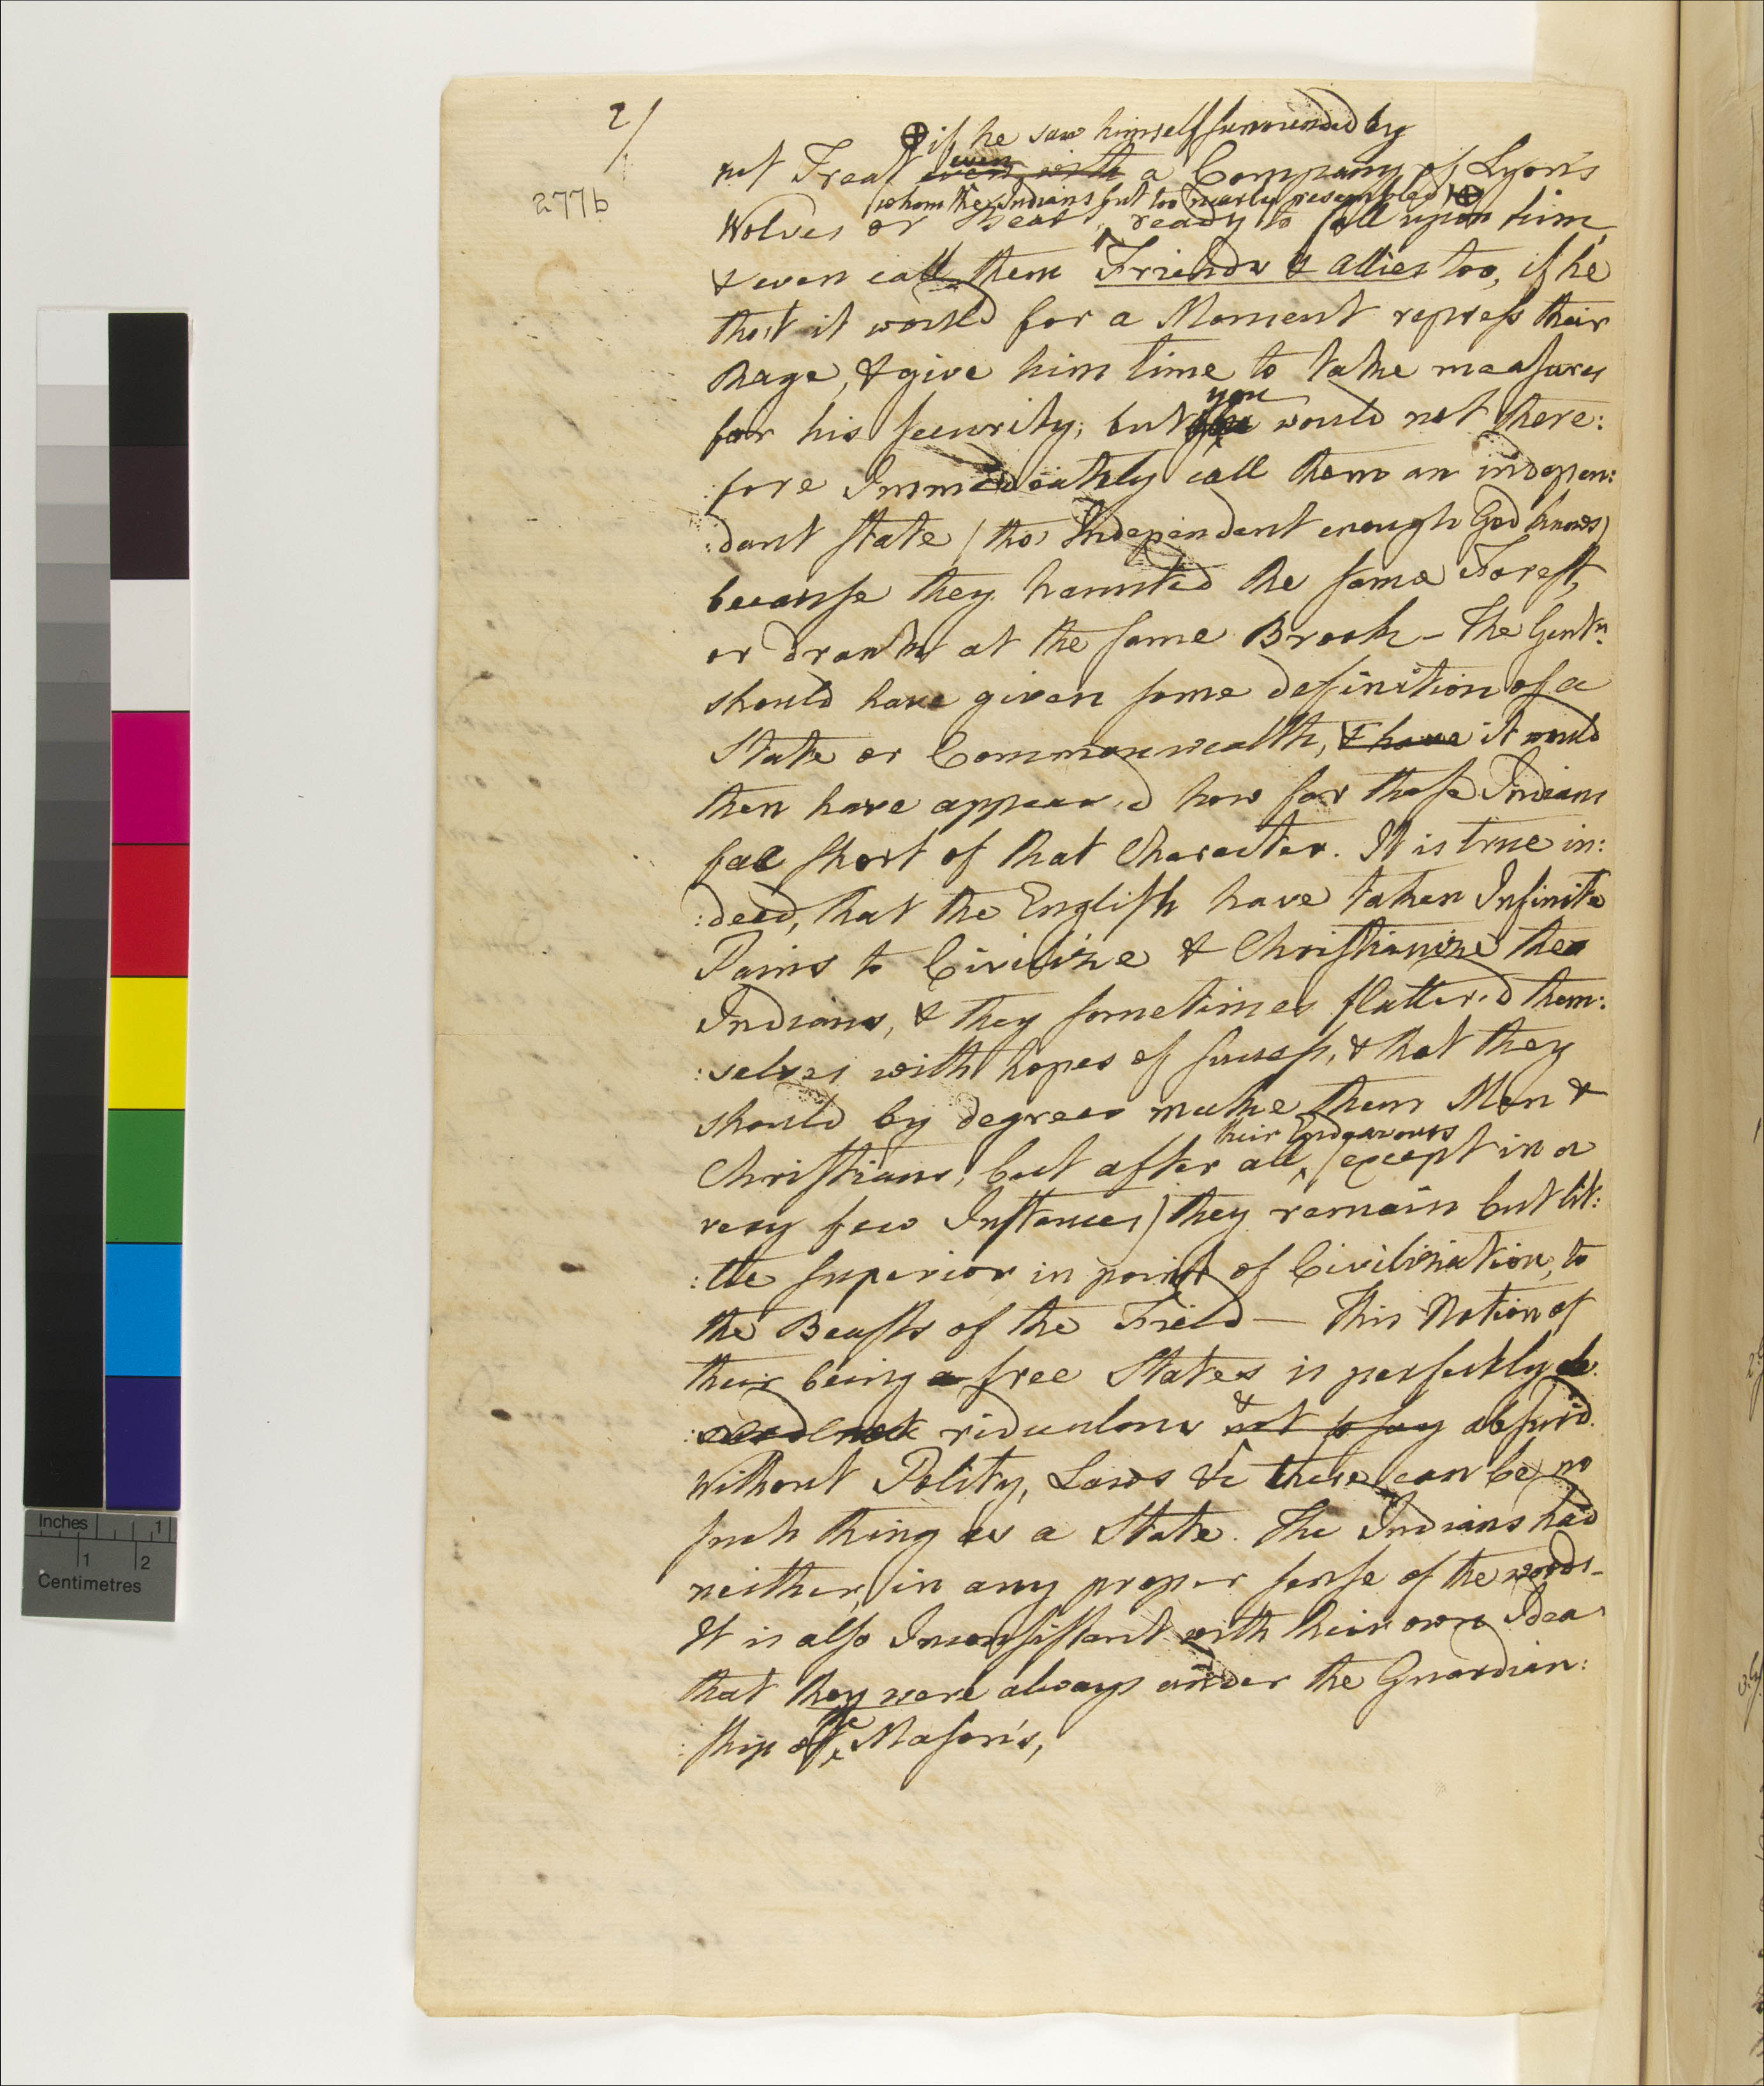 2/
277b
⊕ if he saw himself surrounded by
not Treat even with even a Company of Lyons
(whom the Indians but too nearly resembled) ⊕
Wolves or Bears, ready to fall upon him,
& even call them Friends & allies too, if he
tho't it would for a Moment repress their
Rage, & give him time to take measures
for his security; but you would not there:
:fore Immediately call them an indepen:
:dant state (tho' Independent enough God knows)
because they haunted the same Forest,
or drank at the same Brook – The Gentn.
should have given some definition of a
State or Commonwealth, & have it would
then have appear'd how far these Indians
fall short of that Character. It is true in:
:deed, that the English have taken Infinite
Pains to Civilize & Christianize the
Indians, & they sometimes flatter'd them:
:selves with hopes of success, & that they
should by degrees make them Men &
Christians; but after all their Endeavours (except in a
very few Instances) they remain but lit:
:tle superior in point of Civilization, to
the Beasts of the Field – This Notion of
their being a free States is perfectly
ridiculous & not to say absurd.
Without Polity, Laws &c there can be no
such thing as a State. The Indians had
neither, in any proper sense of the words –
It is also Inconsistant with their own Idea
that they were always under the Guardian:
:ship of the Mason's,